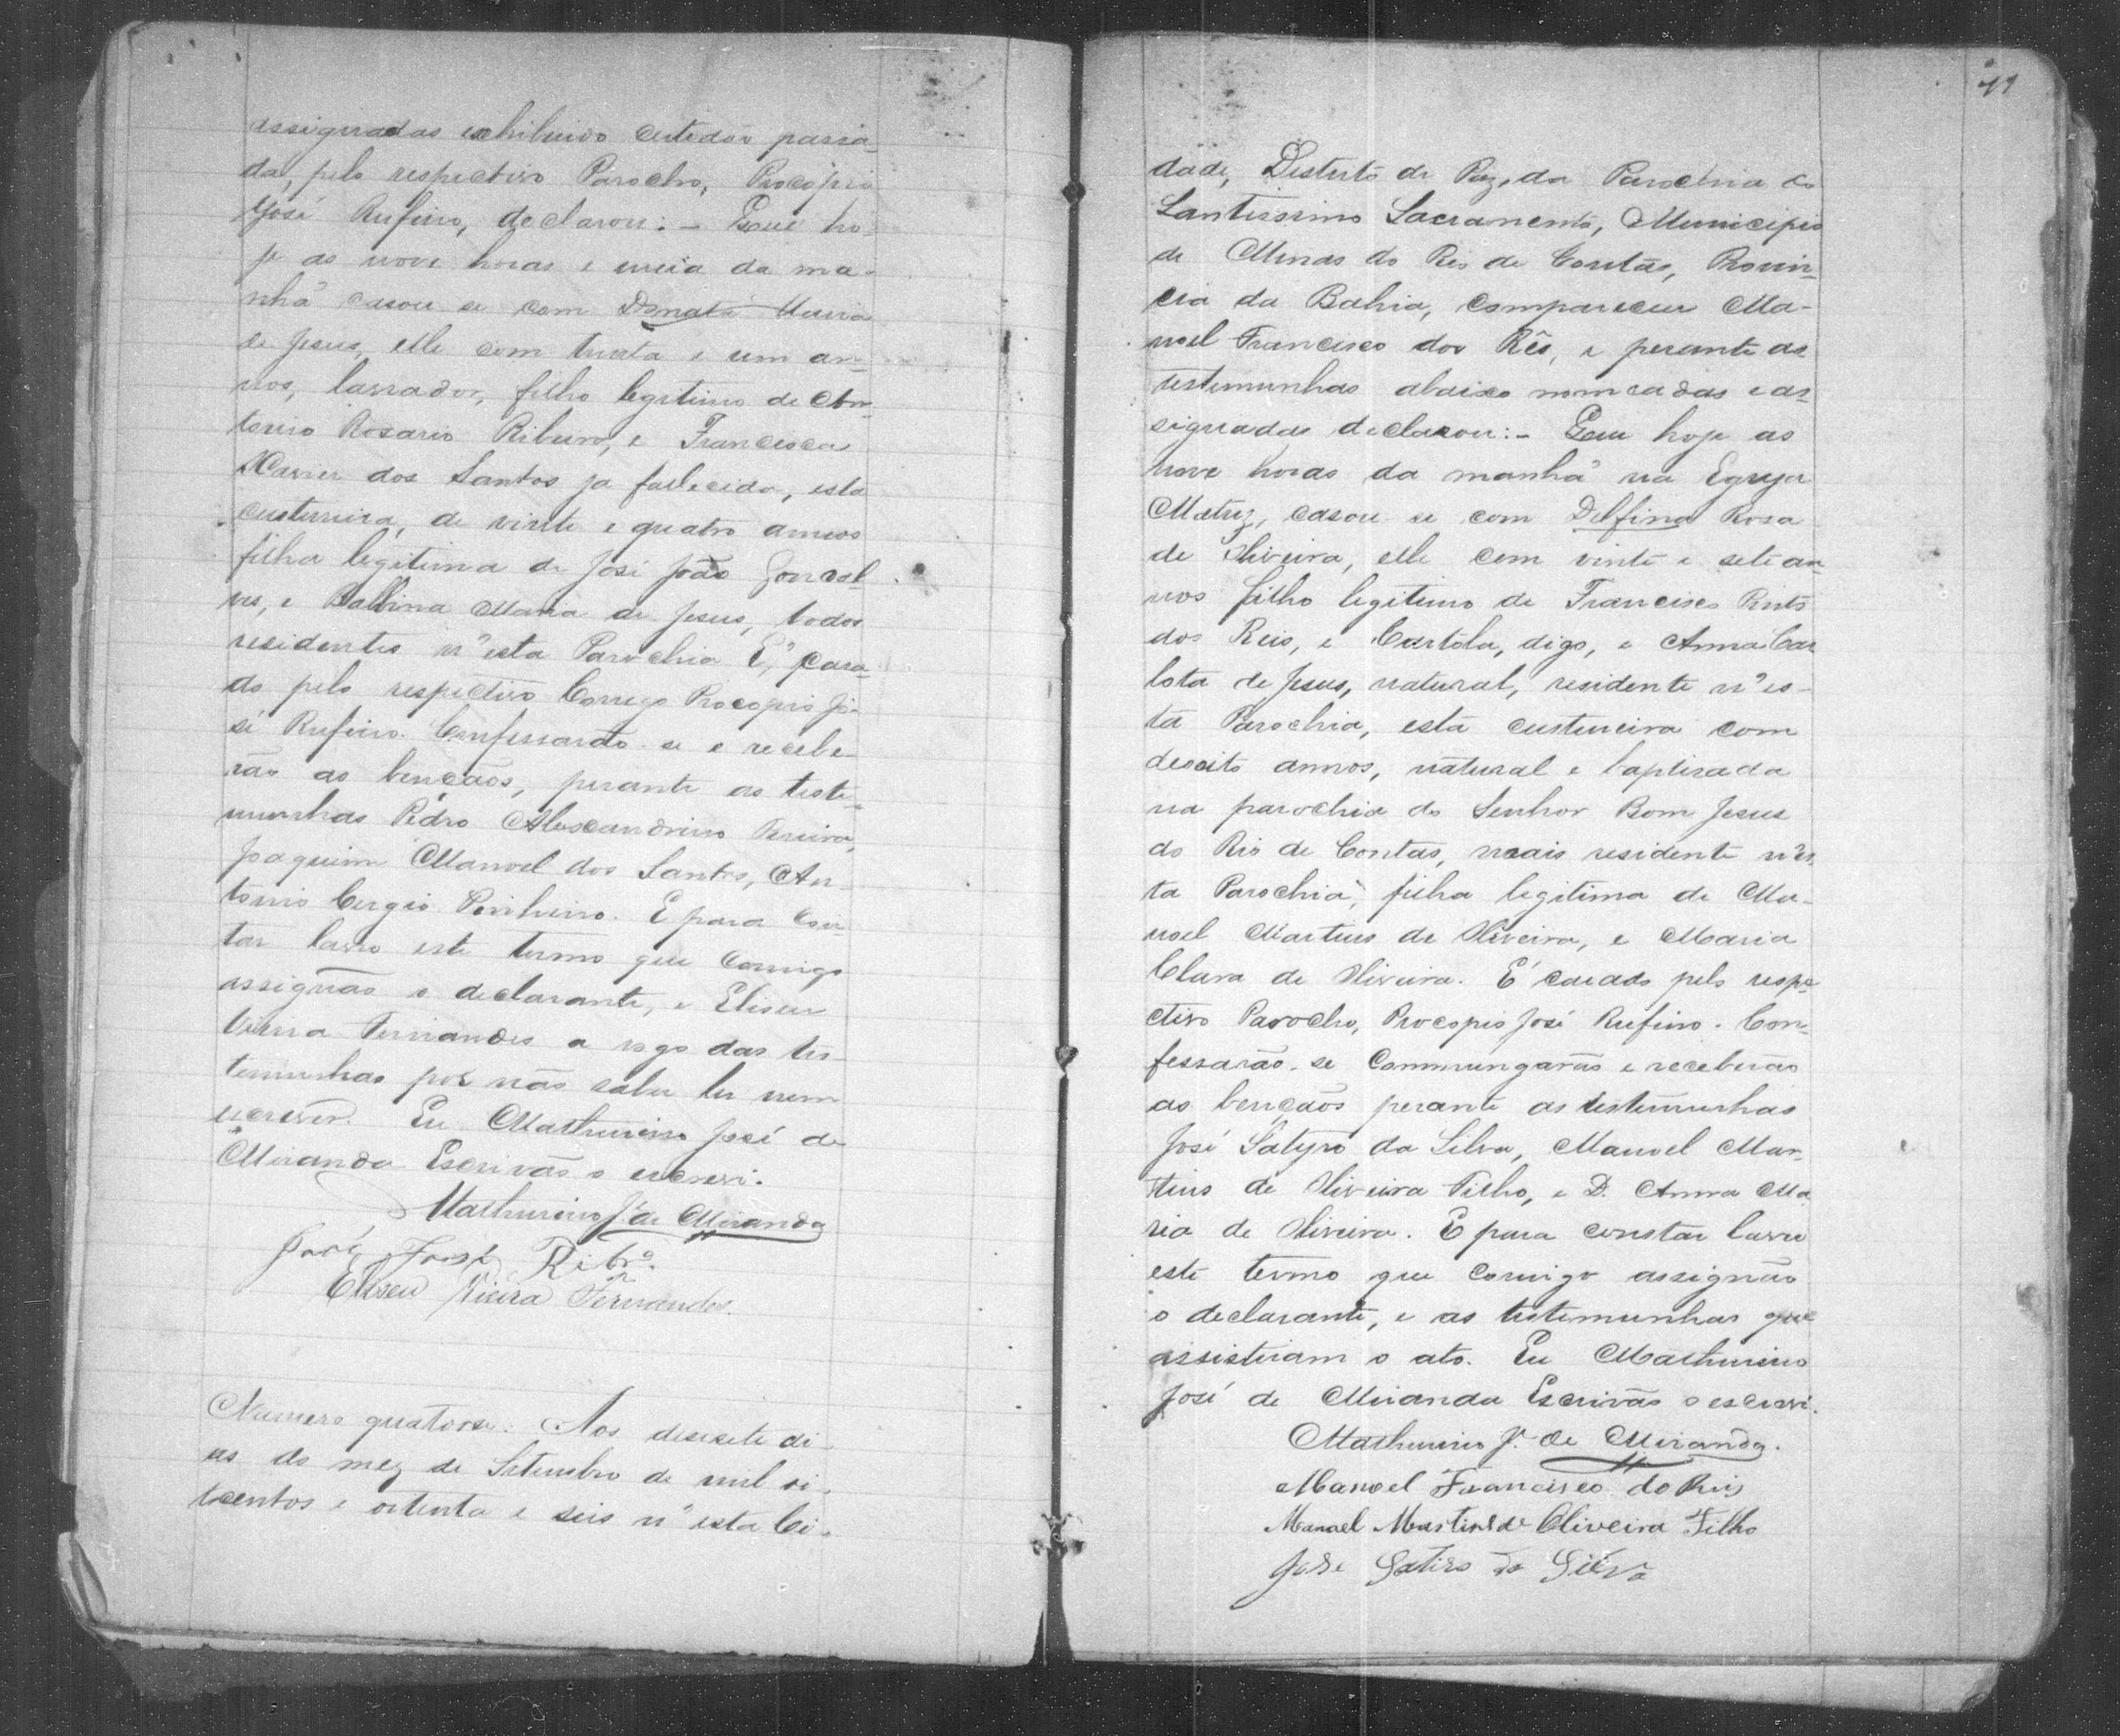 assignadas exhibindo certidão passa-
da, pelo respectivo Parocho, Procopio
José Rufino, declarou: - Que ho-
je as nove horas e meia da ma-
nhã casou se com Donata Maria
de Jesus, elle com trinta e um an-
nos, lavrador, filho legitimo de An-
tonio Rosario Ribeiro, e Francisca
Xavier dos Santos ja fallecida, esta
custureira, de vinte e quatro annos
filha legitima de José João Gonçal-
ves, e Balbina Maria de Jesus, todos
residentes n'esta Parochia E, casa-
do pelo respectivo Conego Procopio Jo-
sé Rufino. Confessarão se e recebe-
rão as bençãos, perante as teste-
munhas Pedro Alexandrino Pereira,
Joaquim Manoel dos Santos, An-
tonio Cergio Pinheiro. E para cons-
tar lavro este termo que comigo
assignão o declarante, e Eliseu
Vieira Fernandes a rogo das tes-
temunhas por não saber ler nem
escrever. Eu Mathurino José de
Miranda Escrivão o escrevi.
Mathurino J. de Miranda
José José Ribr.º
Eliseu Vieira Fernandes.
Numero quatorse. Aos desesete di-
as do mez de Setembro de mil oi-
tocentos e oitenta e seis n'esta Ci-
41
dade, Destricto de Paz, da Parochia do
Santissimo Sacramento, Municipio
de Minas do Rio de Contas, Provin-
cia da Bahia, compareceu Ma-
noel Francisco dos Rês, e perante as
testemunhas abaixo nomeadas e as-
signadas declarou: - Que hoje as
nove horas da manhã na Egreja
Matriz, casou se com Delfina Rosa
de Oliveira, elle com vinte e sete an-
nos filho legitimo de Francisco
dos Reis, e Cartola, digo, e Anna Car
lota de Jesus, natural, residente n'es-
ta Parochia, esta custureira com
desoito annos, natural e baptisada
na parochia do Senhor Bom Jesus
do Rio de Contas, mais residente n'es
ta Parochia, filha legitima de Ma-
noel Martins de Oliveira, e Maria
Clara de Oliveira. E' casado pelo respe
ctivo Parocho, Procopio José Rufino. Con-
fessarão se Commungarão e receberão
as bençãos perante as testemunhas
José Satyro da Silva, Manoel Mar-
tins de Oliveira Filho, e D. Anna Ma
ria de Oliveira. E para constar lavro
este termo que comigo assignão
o declarante, e as testemunhas que
assistiram o ato. Eu Mathurino
José de Miranda Escrivão o escrevi.
Mathurino J. de Miranda.
Manoel Francisco do Reis
Manoel Martins de Oliveira Filho
José Satiro da Silva